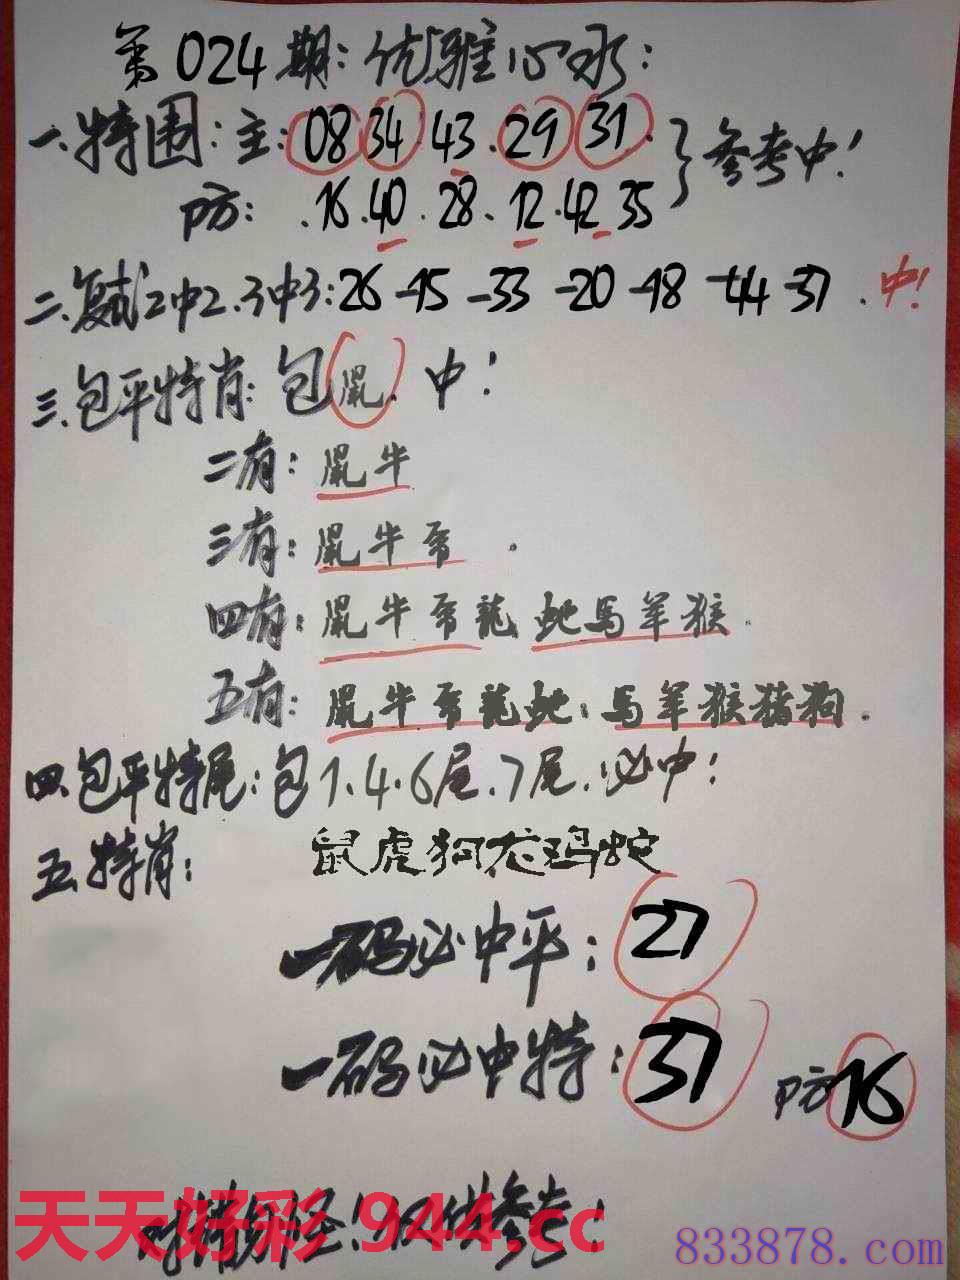 第024期：优雅心水：
一.特围：主：08 34 43.29 31. 参考中！
防：.16.40.28.12.42 35
二.复式2中2.3中3：26-15-33-20-18-44-37.中！
三.包平特肖：包鼠.中！
二有：鼠牛
三有：鼠牛兎.
四有：鼠牛兎龍 蛇馬羊猴.
五有：鼠牛兎龍蛇.馬羊猴猪狗.
四.包平特尾：包1.4.6尾.7尾.必中！
五.特肖：鼠虎狗龙鸡蛇
一码必中平：27
一码必中特：37 防16
对错勿怪！仅供参考！
天天好彩.944.cc
833878.com